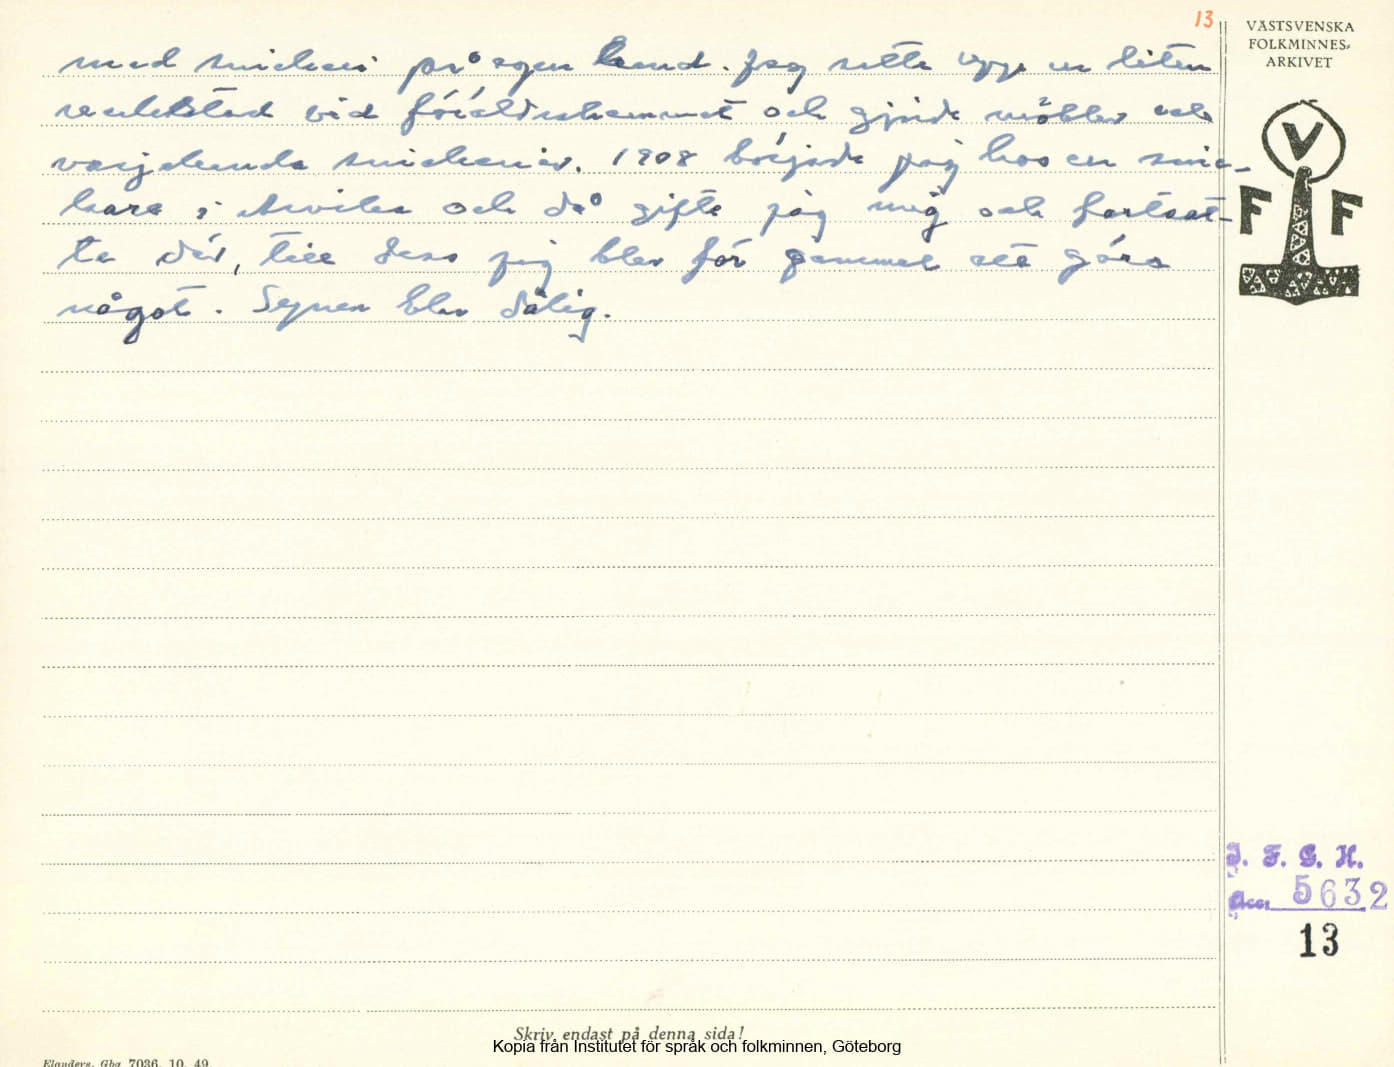 13
VÄSTSVENSKA
FOLKMINNES-
ARKIVET
med snickeri på egen hand. Jag satte upp en liten
verkstad vid föräldrahemmet och gjorde möbler och
varjehanda snickerier. 1908 började jag hos en snic-
kare i Arvika och då gifte jag mig och fortsat-
te där, till dess jag blev för gammal att göra
något. Synen blev dålig.
V
F F
I. F. G. H.
Acc. 5632
13
Skriv endast på denna sida!
Kopia från Institutet för språk och folkminnen, Göteborg
Elanders, Gbg 7036. 10. 49.